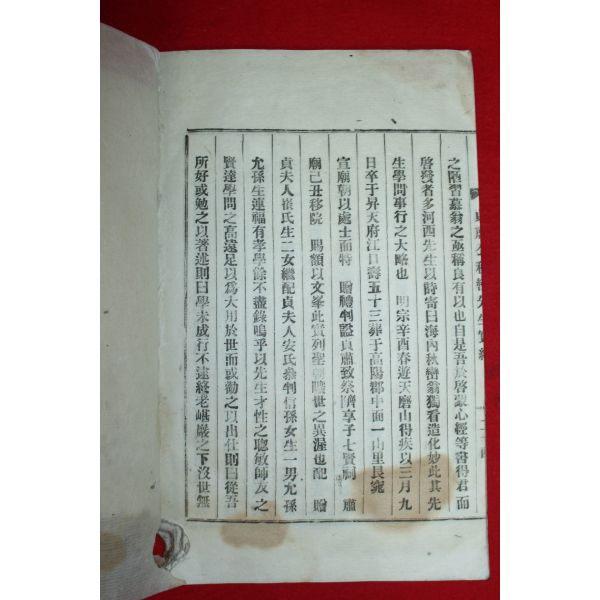 之陋習慕翁之亟稱良有以也自是吾於啓蒙心經等書得君而
啓發者多河西先生以詩寄曰海內秋巒翁獨看造化妙此其先
生學問事行之大略也 明宗辛酉春遊天磨山得疾以三月九
日卒于昇天府江口壽五十三葬于高陽郡中面一山里艮
宣廟朝以處士面特 贈禮判謚貞肅致祭隮享于七賢祠 肅
廟己丑移院 賜額以文峯此實列聖朝曠世之異渥也配 贈
貞夫人崔氏生二女繼配貞夫人安氏參判信孫女生一男允孫
允孫生運福有孝學餘不盡錄嗚乎以先生才性之聰敏師友之
賢達學問之高遠足以爲大用於世而或勸之以出仕則曰從吾
所好或勉之以著述則曰學未成行不遠終老嵁巖之下沒世無